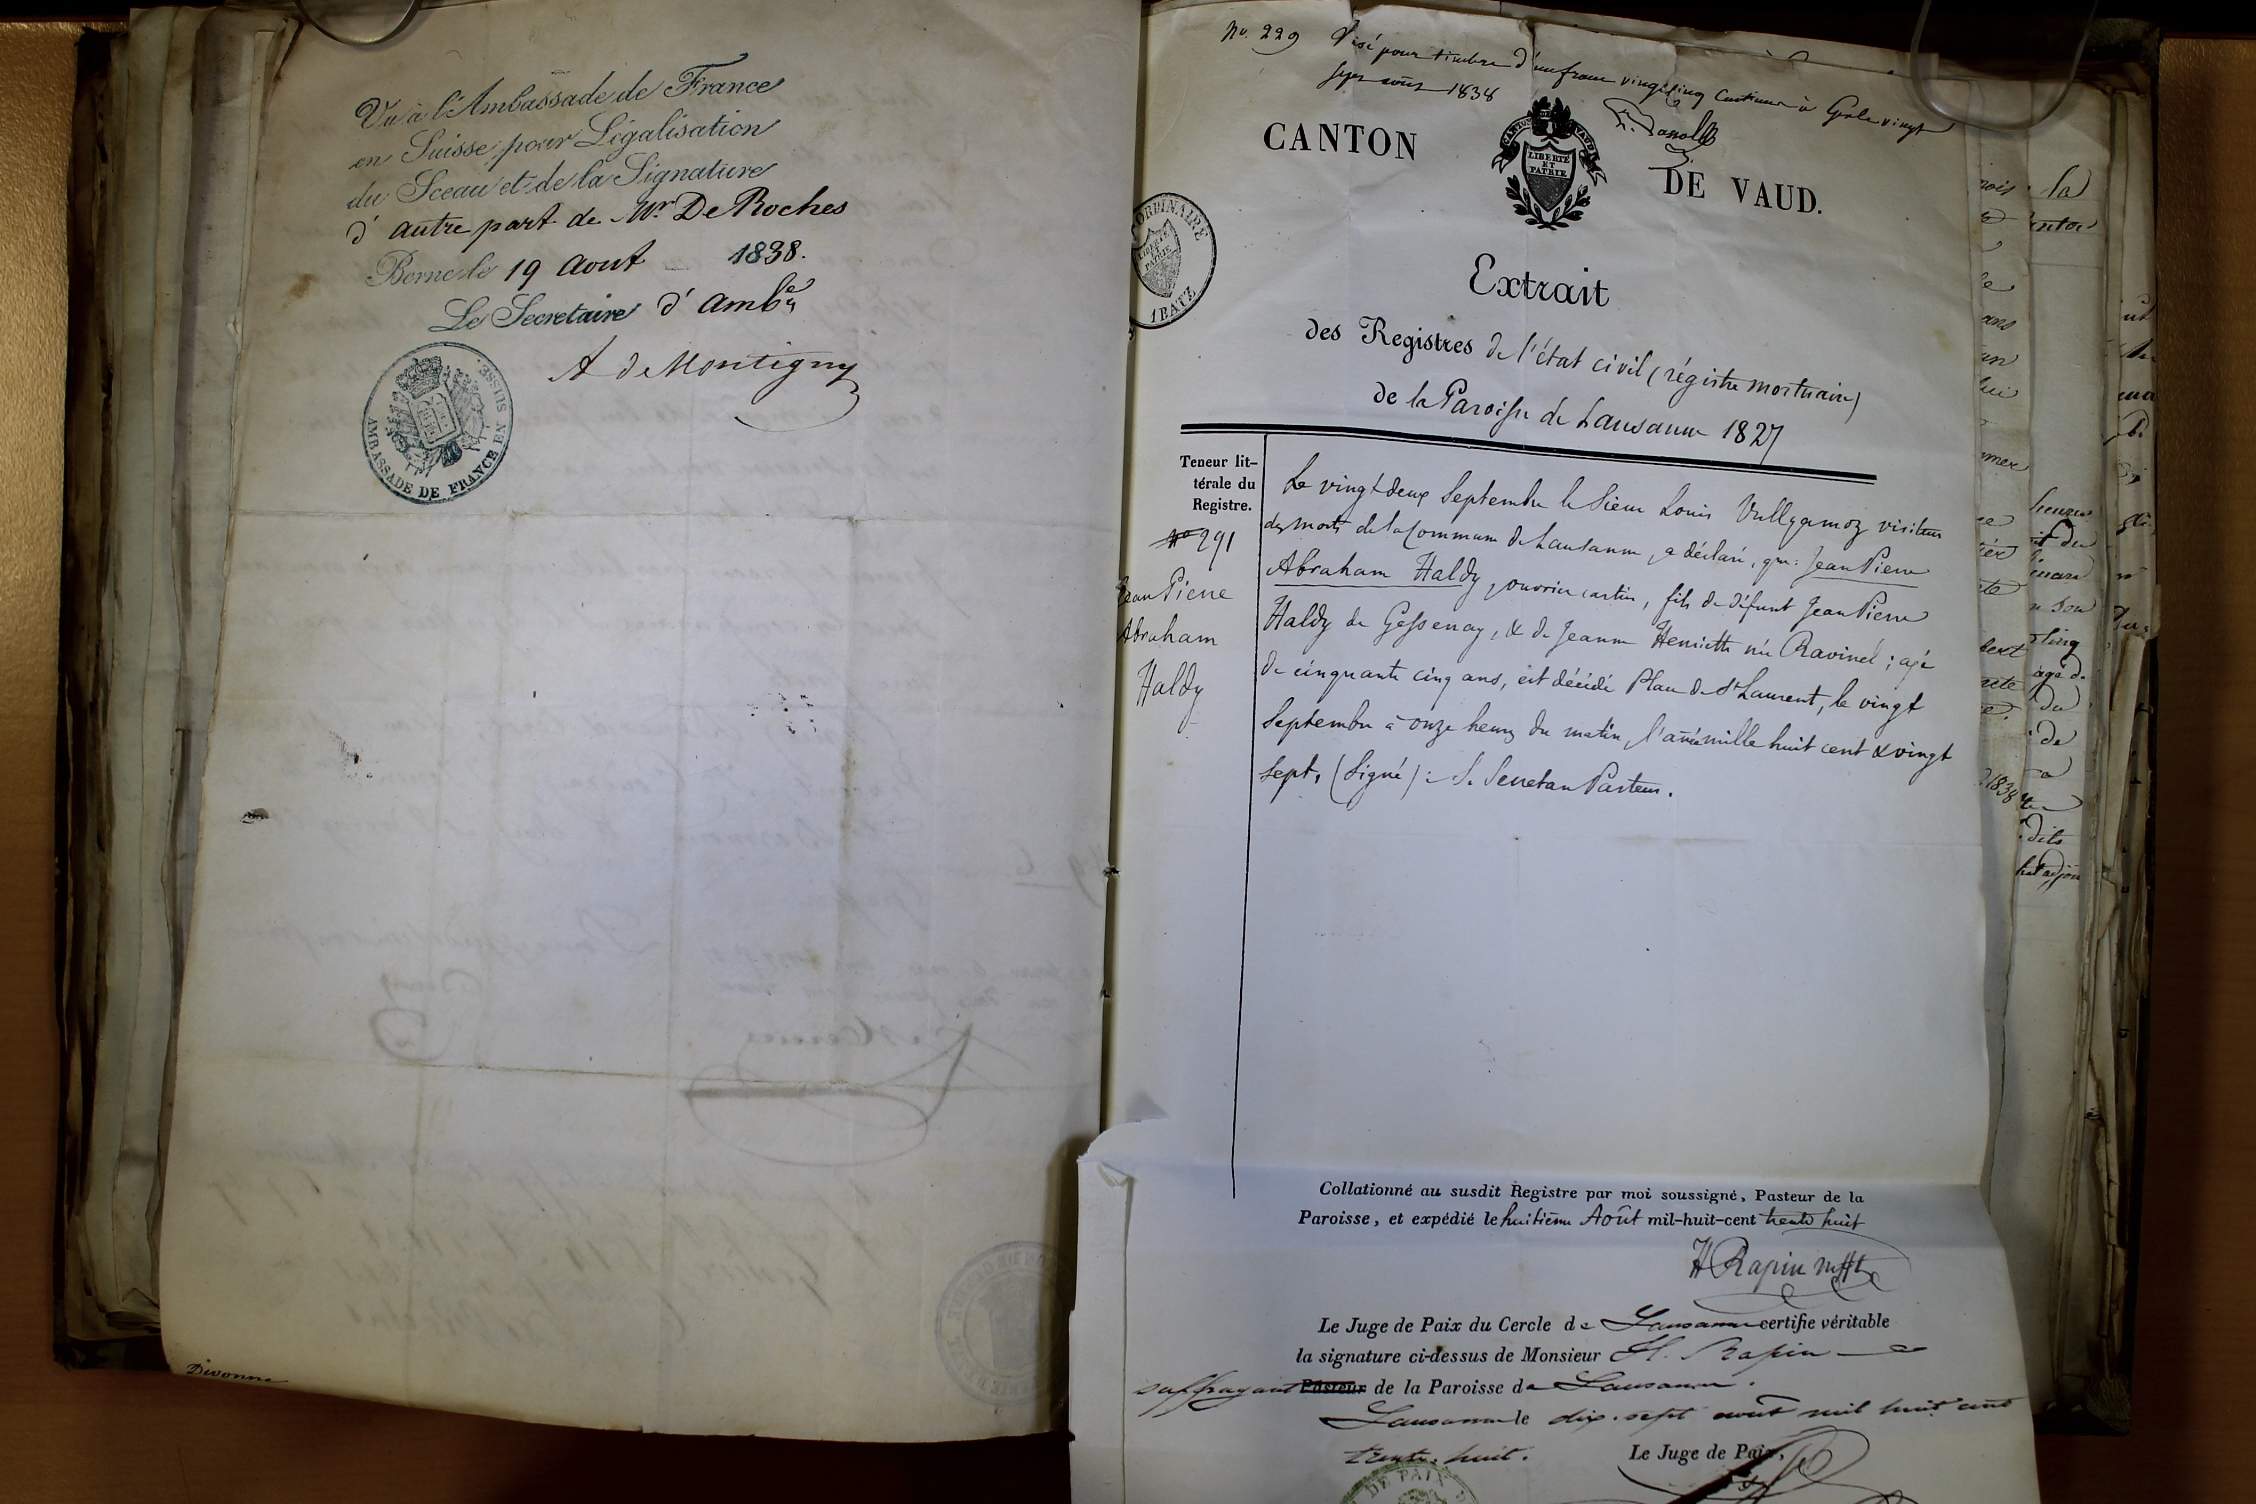 Vu à l'Ambassade de France
en Suisse, pour Légalisation
du Sceau et de la Signature
d'autre part de Mr De Roches
Berne le 19 Aout 1838.
Le Secretaire d'Ambe
A de Montigny
AMBASSADE DE FRANCE EN SUISSE.
Divonne
No. 229 Visé pour timbre d'un franc vingt cinq centimes à Gex le vingt
sept août 1838
CANTON DE VAUD.
CANTON DE VAUD
LIBERTÉ
ET
PATRIE
ORDINAIRE
LIBERTÉ
ET
PATRIE
1 BATZ
Extrait
des Registres de l'état civil (régistre mortuaire)
de la Paroisse de Lausanne 1827
Teneur lit-
térale du
Registre.
No 291
Jean Pierre
Abraham
Haldy
Le vingt deux Septembre le Sieur Louis Vullyamoz visiteur
des morts de la Commune de Lausanne, a déclaré, que: Jean Pierre
Abraham Haldy, ouvrier cartier, fils de défunt Jean Pierre
Haldy de Gessenay, & de Jeanne Henriette née Ravinel; agé
de cinquante cinq ans, est décédé Place de St Laurent, le vingt
Septembre à onze heures du matin, l'année mille huit cent & vingt
sept. (Signé): S. Secretan Pasteur.
Collationné au susdit Registre par moi soussigné, Pasteur de la
Paroisse, et expédié le huitième Août mil-huit-cent trente huit
H Rapin sufft
Le Juge de Paix du Cercle de Lausanne certifie véritable
la signature ci-dessus de Monsieur H. Rapin
suffragant Pasteur de la Paroisse de Lausanne.
Lausanne le dix-sept août mil huit cent
trente-huit. Le Juge de Paix,
DE PAIX